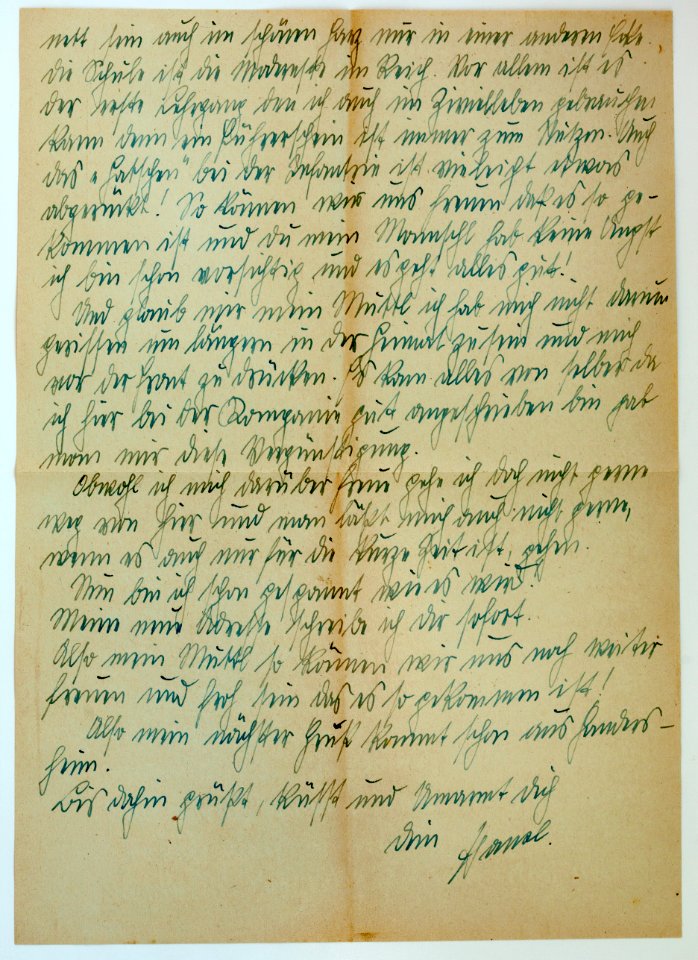 nett sein auch im schönen Harz nur in einer anderen Ecke.
die Schule ist die Modernste im Reich. Vor allem ist es
der erste Lehrgang den ich auch im Zivilleben gebrauchen
kann denn ein Führerschein ist immer zum Nutzen. Auch
das „Latschen" bei der Infanterie ist vieleicht etwas
abgerückt! So können wir uns freuen daß es so ge-
kommen ist und du mein Mannschl hab keine Angst
ich bin schon vorsichtig und es geht alles gut!
Und glaub mir mein Muttl ich hab mich nicht darum
gerissen um längern in der Heimat zu sein und mich
vor der Front zu drücken. Es kam alles von selber da
ich hier bei der Kompanie gut angeschrieben bin gab
man mir diese Vergünstigung.
Obwohl ich mich darüber freue gehe ich doch nicht gerne
weg von hier und man läßt mich auch nicht gerne,
wenn es auch nur für die kurze Zeit ist, gehen.
Nun bin ich schon gespannt wie es wird!
Meine neue Adresse schreibe ich dir sofort.
Also mein Muttl so können wir uns noch weiter
freuen und froh sein das es so gekommen ist!
Also mein nächster Gruß kommt schon aus
heim.
Bis dahin grüßt, küsst und Umarmt dich
dein